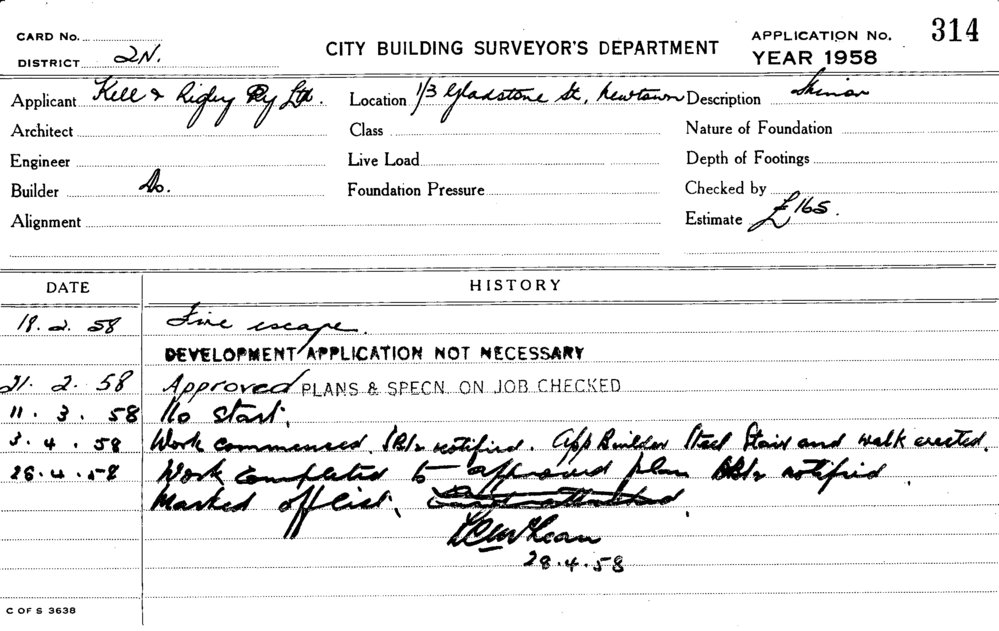 CARD No.
DISTRICT 2N.
CITY BUILDING SURVEYOR'S DEPARTMENT
APPLICATION No. 314
YEAR 1958
Applicant Kell & Rigby Pty Ltd. Location 1/3 Gladstone St, Newtown Description Minor
Architect Class Nature of Foundation
Engineer Live Load Depth of Footings
Builder Do. Foundation Pressure Checked by
Alignment Estimate £165.
DATE HISTORY
19. 2. 58 Fire escape.
DEVELOPMENT APPLICATION NOT NECESSARY
21. 2. 58 Approved PLANS & SPECN. ON JOB CHECKED
11. 3. 58 No start.
3. 4. 58 Work commenced. notified. App Builder Steel Stair and walk erected.
28.4.58 Work completed to approved plan notified.
Marked off list.
28.4.58
C OF S 3638